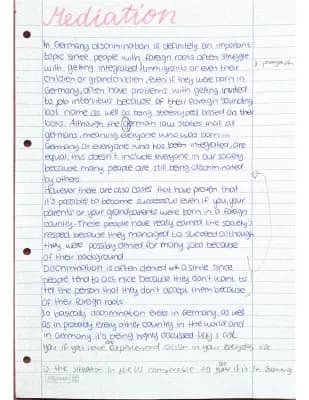 Mediation
In Germany discrimination is definitely an important
topic since people with foreign roots often struggle
with getting integrated. Immigrants or even their
children or grandchildren, even if they were born in
Germany, often have problems with getting invited
to job interviews because of their foreign sounding
last name as well as being stereotyped based on their
looks. Although the German law states that all
germans, meaning everyone who was born in
Germany or everyone who has been integrated, are
equal, this doesn't include everyone in our society
because many people are still being discriminated
by others.
However there are also cases that have proven that
it's possible to become successful even if you, your
parents or your grandparents were born in a foreign
country. These people have really earned the society's
respect because they managed to succeed although
they were possibly denied for many jobs because
of their background.
Discrimination is often denied with a smile since
people tend to act nice because they don't want to
tell the person that they don't accept them because
of their foreign roots.
So basically discrimination exists in Germany, as well
as in probably every other country in the world and
in Germany it's being highly discussed
you if you have experienced racism in your everyday life
the situation in the US comparable to how it is in Germany